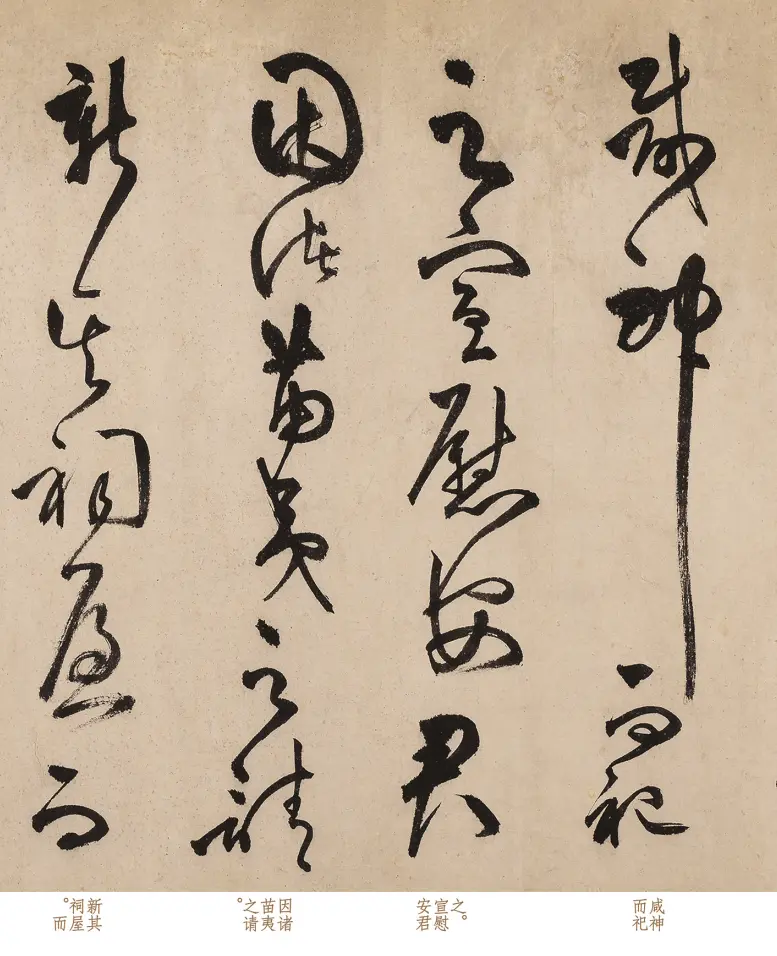 咸神而祀
之宣慰安君
因諸苗夷之請
新其祠屋而
咸神
而祀
之。
宣慰
安君
因诸
苗夷
之请
。
新其
祠屋
。而